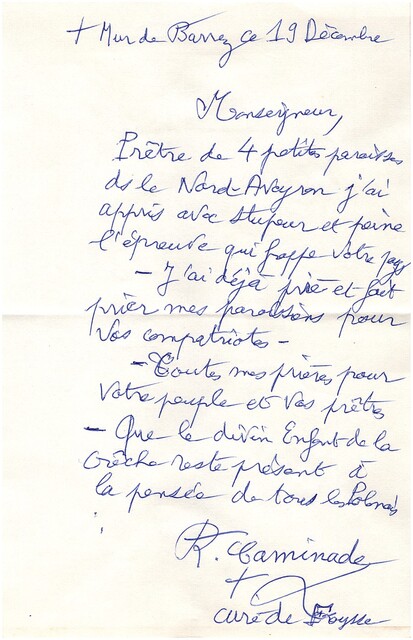 + Mur de Barrez ce 19 Décembre
Monseigneur,
Prêtre de 4 petites paroisses
ds le Nord-Aveyron j'ai
appris avec stupeur et peine
l'épreuve qui frappe votre pays
- J'ai déjà prié et fait
prier mes paroissiens pour
vos compatriotes -
- Toutes mes prières pour
votre peuple et vos prêtres
- Que le divin Enfant de la
Crèche reste présent à
la pensée de tous les Polonais
R. Caminade
+
curé de